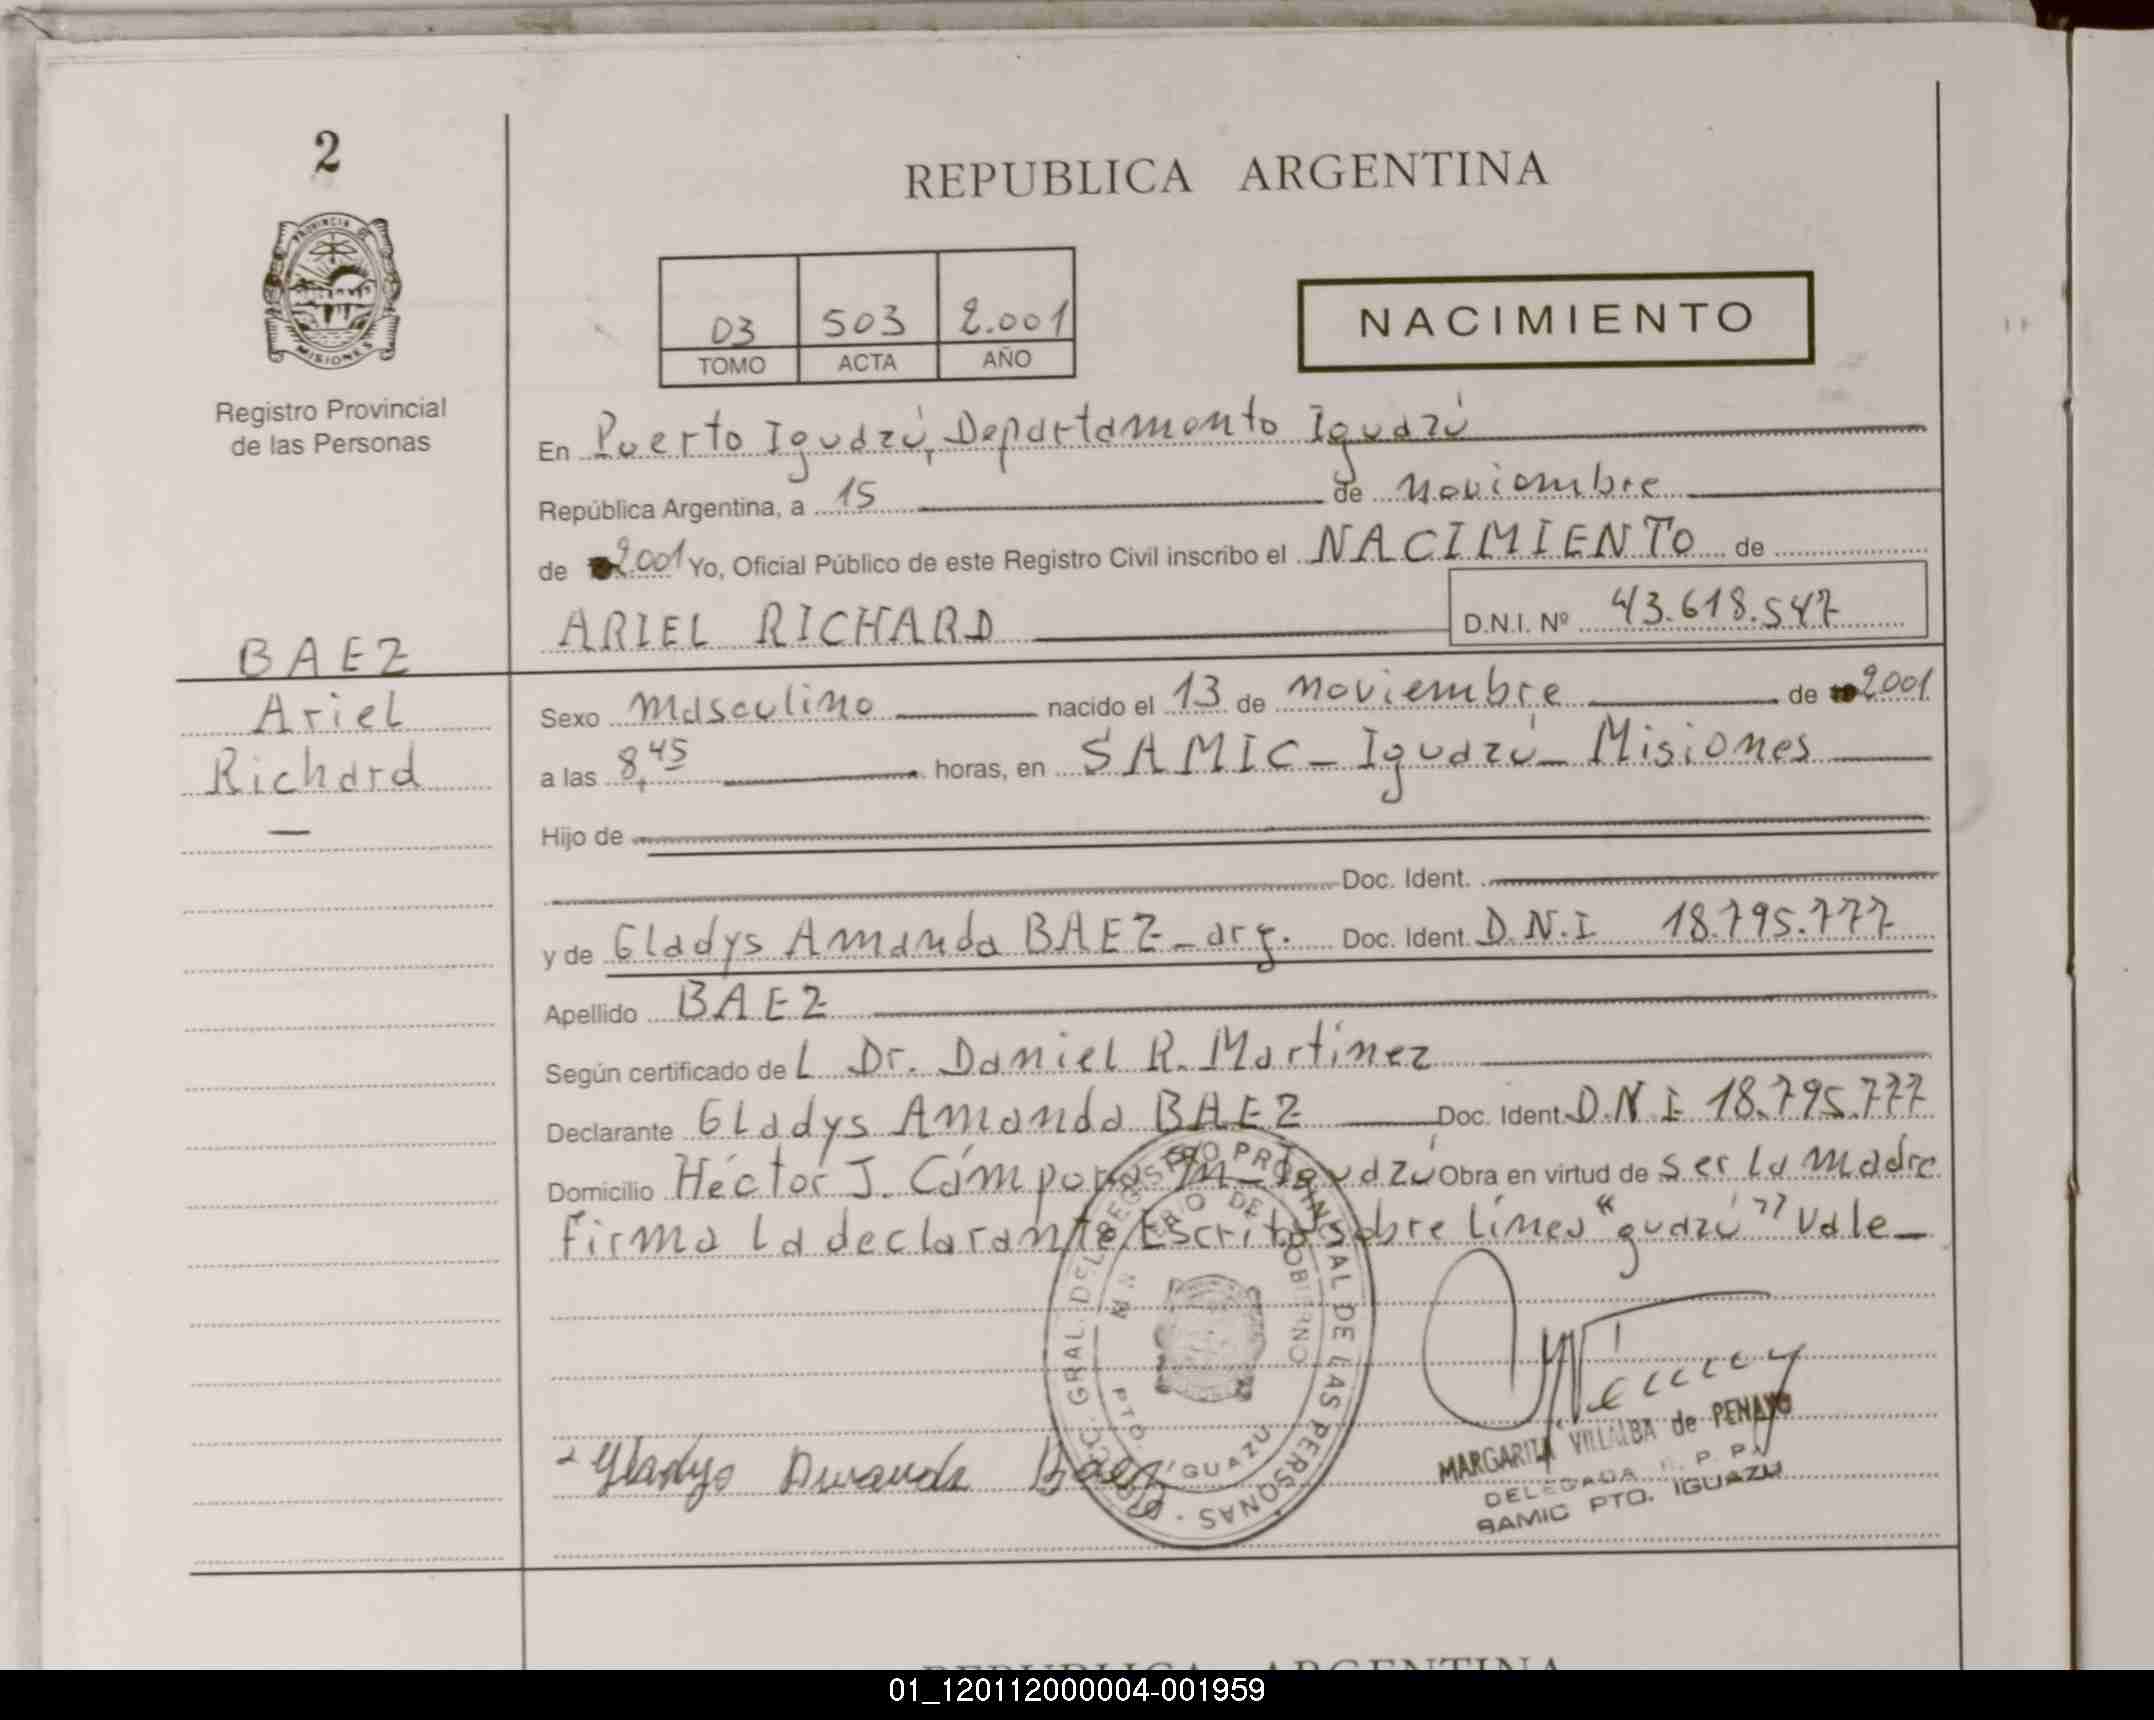 2
REPUBLICA ARGENTINA
PROVINCIA DE
MISIONES
Registro Provincial
de las Personas
03 503 2.001
TOMO ACTA AÑO
NACIMIENTO
En Puerto Iguazú, Departamento Iguazú
República Argentina, a 15 de noviembre
de 2001 Yo, Oficial Público de este Registro Civil inscribo el NACIMIENTO de
ARIEL RICHARD D.N.I. Nº 43.618.547
BAEZ
Ariel
Richard
Sexo masculino nacido el 13 de noviembre de 2001
a las 8,45 horas, en SAMIC - Iguazú - Misiones
Hijo de
Doc. Ident.
y de Gladys Amanda BAEZ - arg. Doc. Ident. D.N.I 18.795.777
Apellido BAEZ
Según certificado del Dr. Daniel R. Martínez
Declarante Gladys Amanda BAEZ Doc. Ident. D.N.I 18.795.777
Domicilio Héctor J. Cámpora Iguazú Obra en virtud de ser la madre
firma la declarante Escrito sobre línea "guazú" Vale -
DIRECC. GRAL. DEL REGISTRO PROVINCIAL DE LAS PERSONAS
MINISTERIO DE GOBIERNO
PTO. IGUAZU
Gladys Amanda Baez
MARGARITA VILLALBA de PENAYO
DELEGADA R. P. P.
SAMIC PTO. IGUAZU
REPUBLICA ARGENTINA
01_120112000004-001959